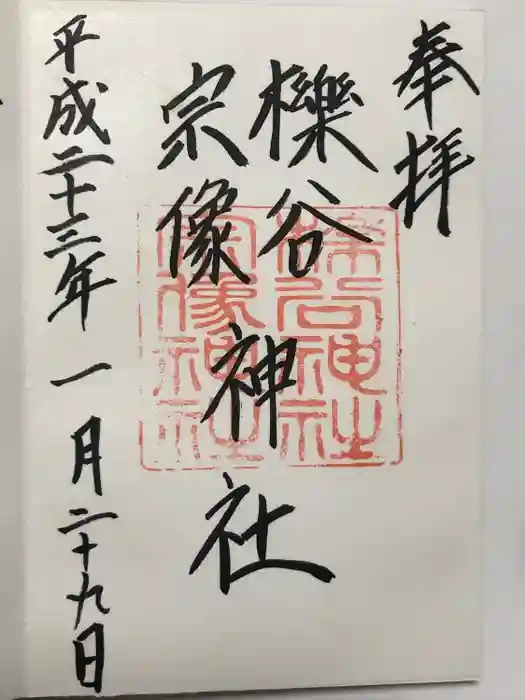 奉拝
櫟谷
宗像
神社
櫟谷神社
宗像神社
平成二十三年 一月二十九日